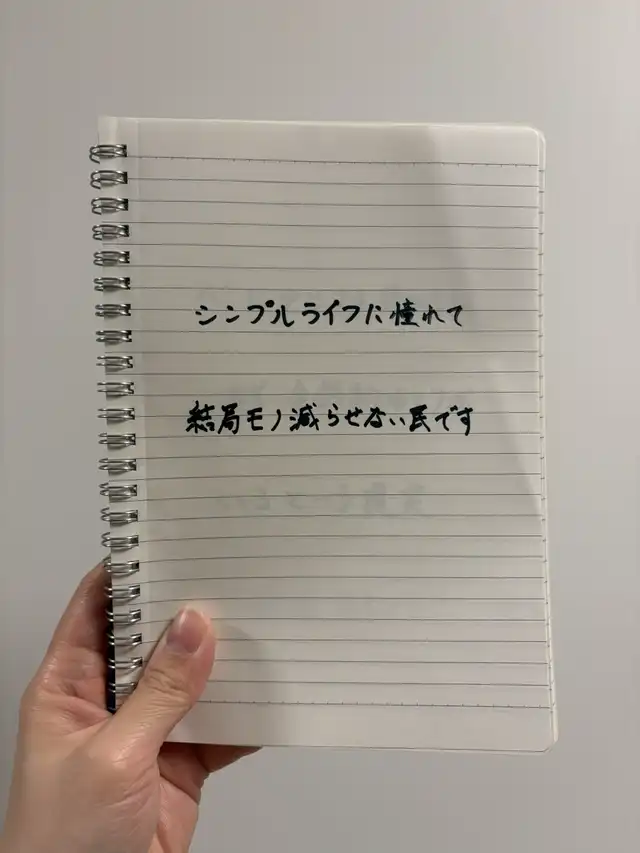 シンプルライフに憧れて
結局モノ減らせない民です